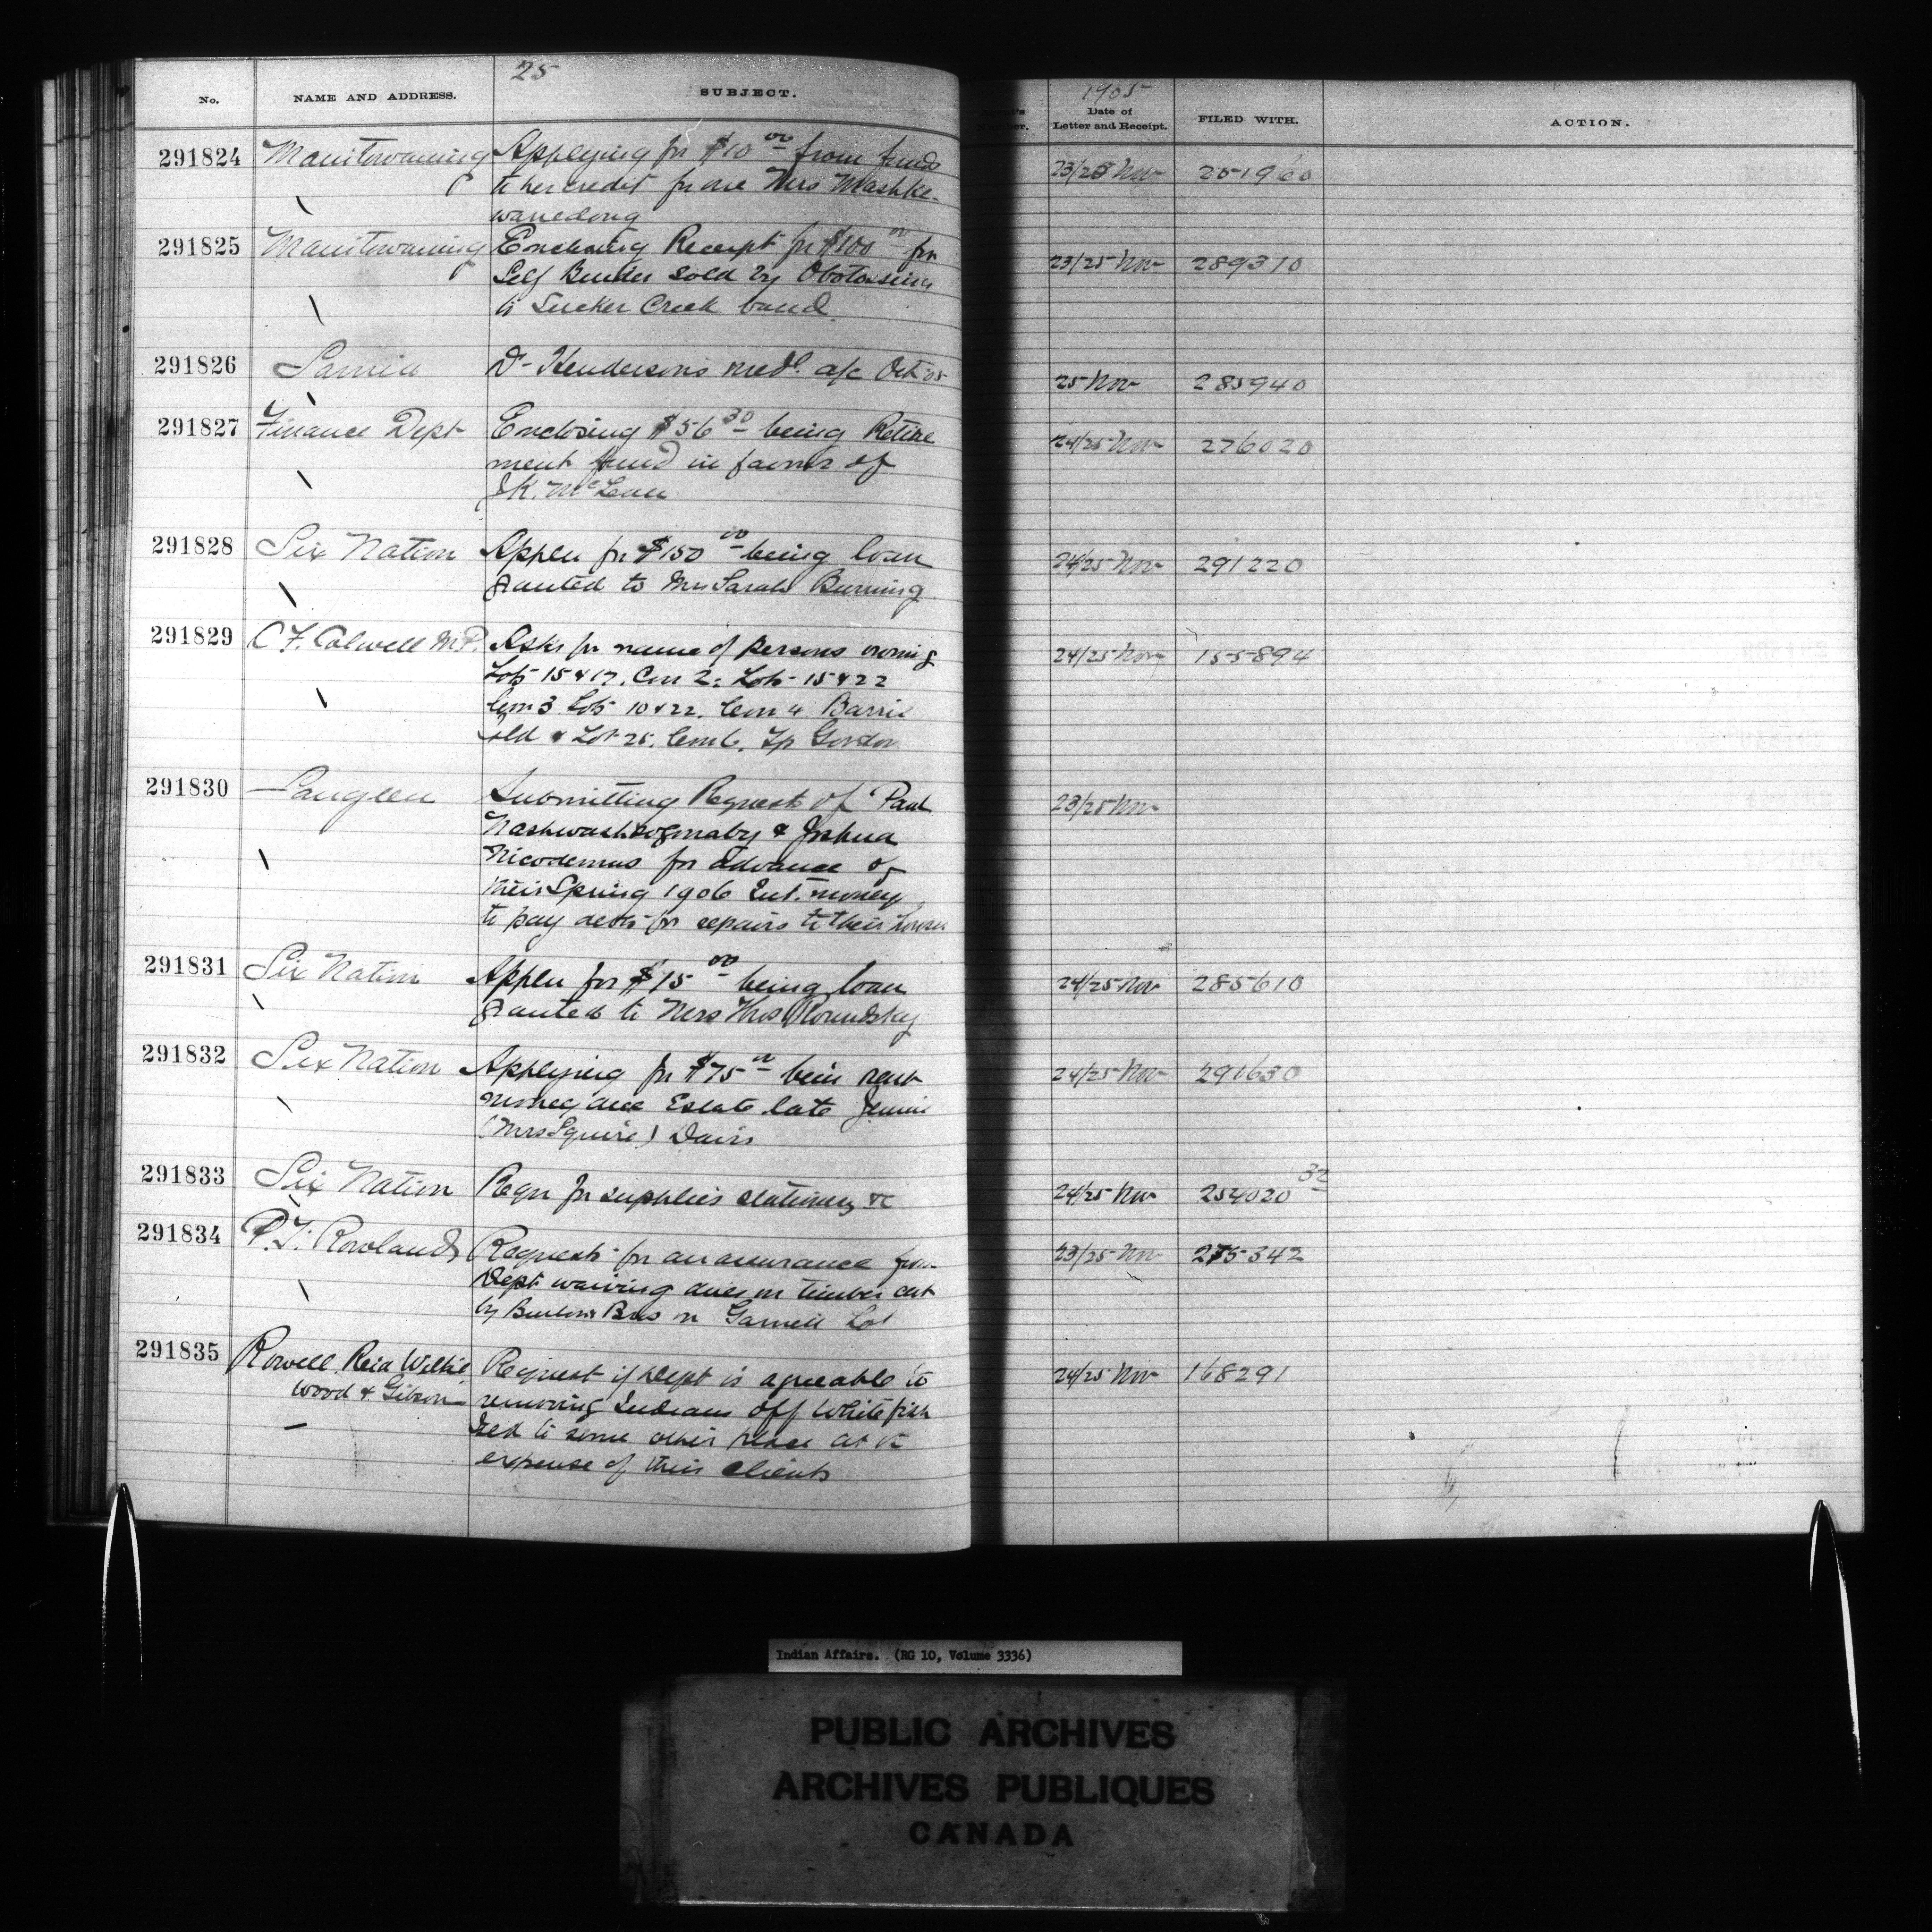 25
No. NAME AND ADDRESS. SUBJECT.
1905
Date of Letter and Receipt. FILED WITH. ACTION.
291824 Manitowaning Applying for $10 00 from funds 23/25 Nov 251960
to her credit for one Mrs Mashke-
wanedong
291825 Manitowaning Enclosing Receipt for $100 00 for 23/25 Nov 289310
Self Binder sold by Obotossing
to Sucker Creek band
291826 Sarnia Dr Hendersons medl a/c Oct 05 25 Nov 285940
291827 Finance Dept Enclosing $56 30 being Retire 24/25 Nov 276020
ment fund in favor of
J.K. McLean.
291828 Six Nation Appln for $150 00 being loan 24/25 Nov 291220
granted to Mrs Sarah Burning
291829 C F. Calwell M.P. Asks for name of persons owning 24/25 Nov 155894
Lots 15 & 17. Con 2: Lots 15 & 22
Con 3 Lots 10 & 22. Con 4 Barrie
Isld & Lot 25. Con 6. Tp Gordon
291830 Saugeen Submitting Request of Paul 23/25 Nov
& Joshua
Nicodemus for advance of
their Spring 1906 Int. money
to pay debts for repairs to their houses
291831 Six Nation Appln for $15 00 being loan 24/25 Nov 285610
granted to Mrs Thos Roundsky
291832 Six Nation Applying for $75 00 bein rent 24/25 Nov 291630
money due Estate late Jennie
(Mrs Squire) Davis
291833 Six Nation Reqn for supplies stationery &c 24/25 Nov 254020 32
291834 P.T. Rowland Requests for an assurance from 23/25 Nov 275342
Dept waiving dues on timber cut
by Bros on Lot
291835 Rowell Reid Wilkie Request if Dept is agreeable to 24/25 Nov 168291
Wood & Gibson removing Indians off White fish
Res to some other place at the
expense of their clients
Indian Affairs. (RG 10, Volume 3336)
PUBLIC ARCHIVES
ARCHIVES PUBLIQUES
CANADA